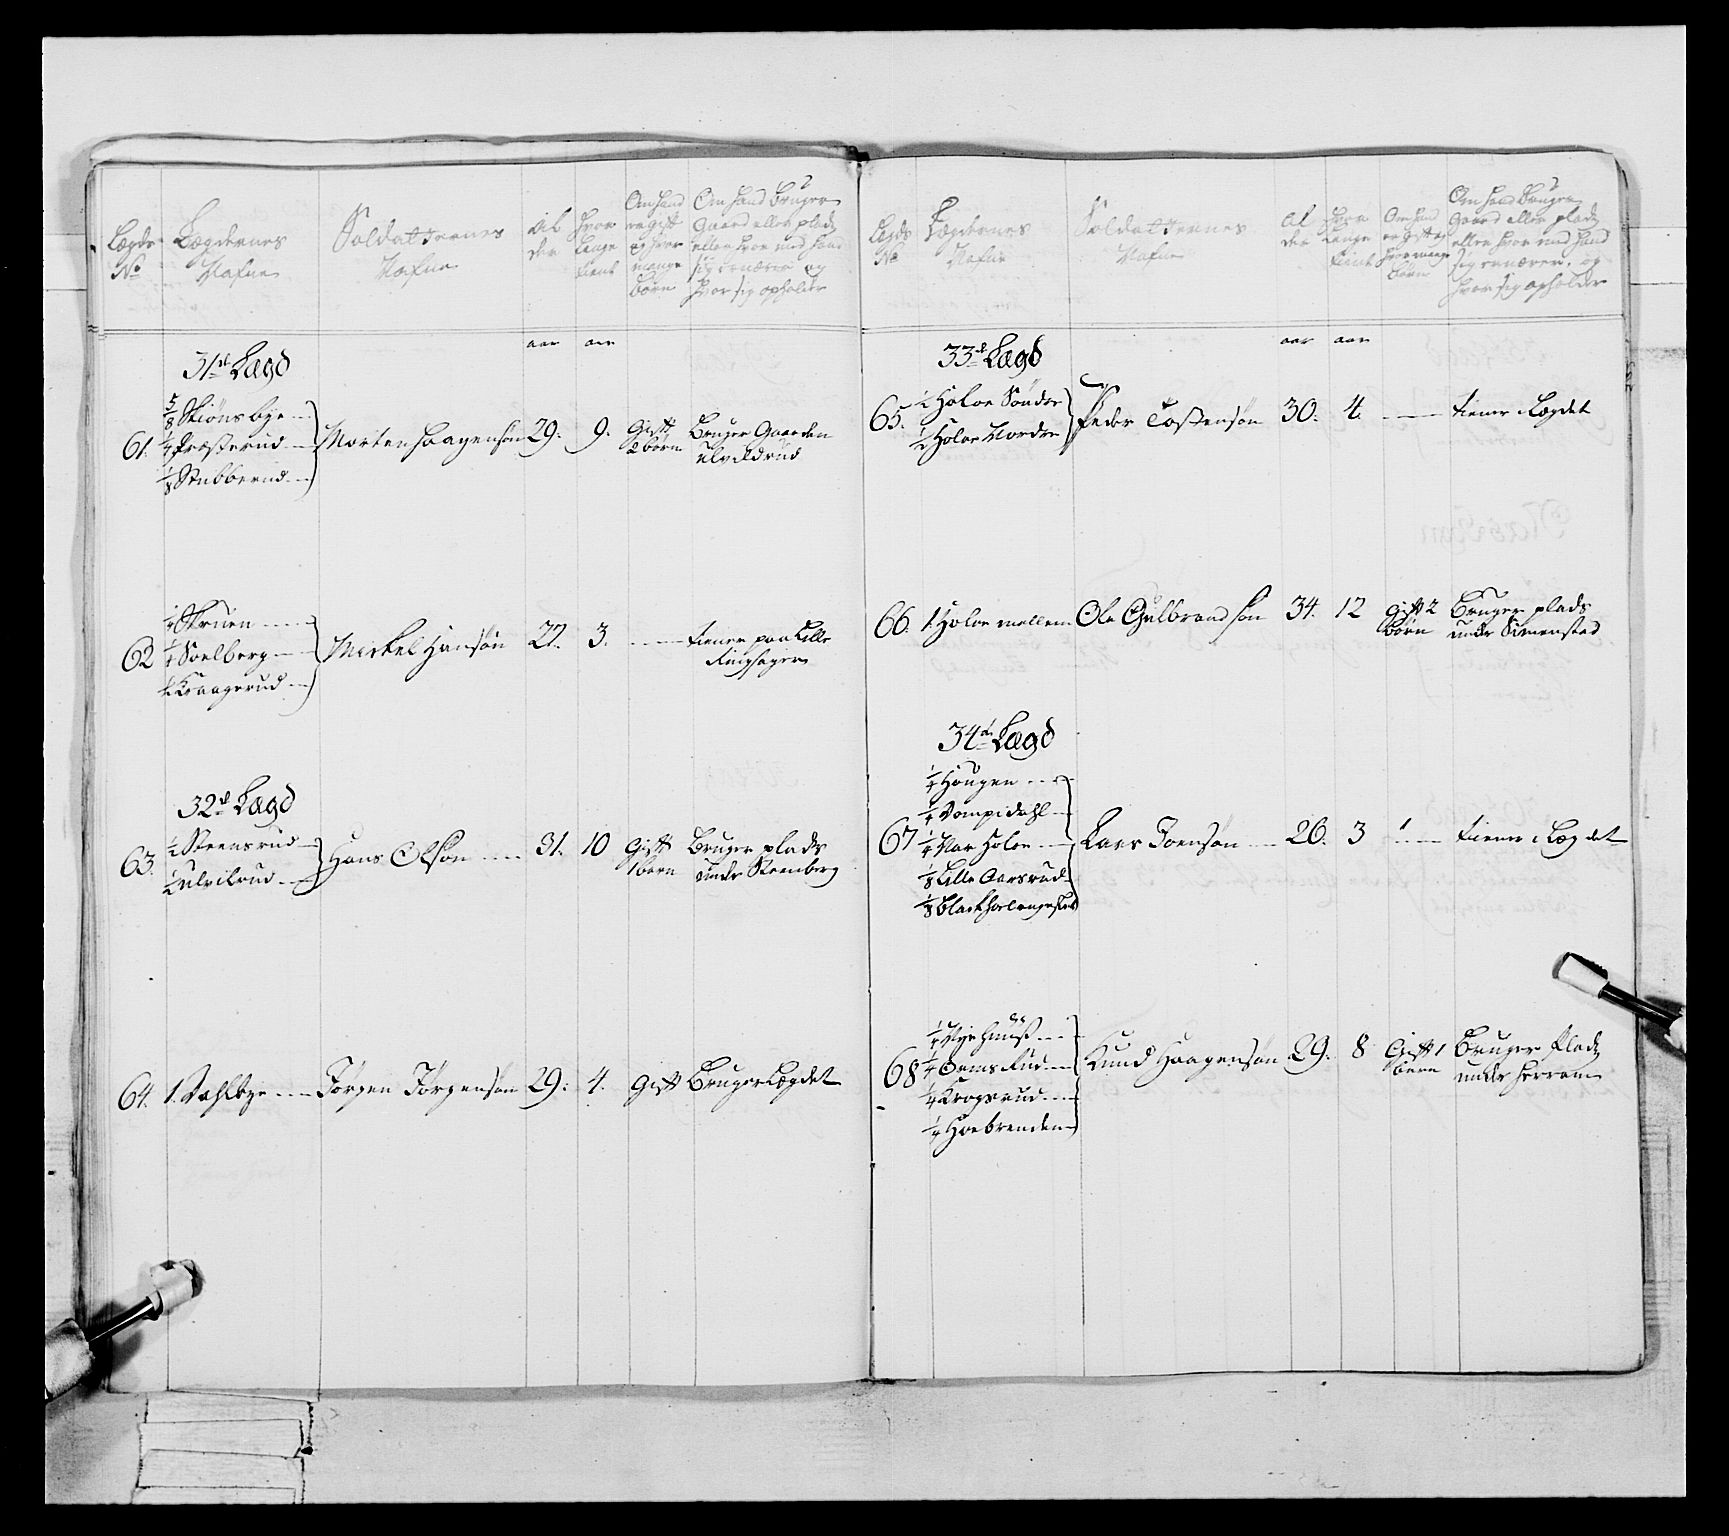 Lægds No
Lægdernes Nafne
Soldatternes Nafne
Al der
Hvor Længe tient
Om hand er gift og hvor mange børn
Om hand bruger Gaard eller plads eller hvor med hand sig ernærer og hvor sig opholder
aar aar
31te Lægd
61. 5/8 Skiønsbye
1/4 Præsterud
1/8 Stubberud
Morten Haagensøn 29. 9. Gift 2 børn Bruger Gaarden Ulvildrud
62 Skruen
Soelberg
Kraagerud
Mickel Hansøn 27. 3. tiener paa Lille Ringsager
32te Lægd
63. 1/2 Steensrud
1/2 Ulvilrud
Hans Olsøn 31. 10 Gift 1 barn Bruger plads under Steenberg
64. 1. Dahlbye Jørgen Jørgensøn 29: 4. Gift Bruger Lægdet
Lægds No
Lægdernes Nafne
Soldatternes Nafne
Al der
Hvor Længe tient
Om hand er gift og hvor mange børn
Om hand Bruger Gaard eller plads eller hvor med hand sig ernærer og hvor sig opholder
aar aar
33te Lægd
65. 1/2 Holoe Søndre
1/2 Holoe Nordre
Peder Tostensøn 30. 4. tiener i Lægdet
66. 1. Holoe mellem Ole Gulbrandsøn 34. 12 gift 2 børn Bruger plads under Simenstad
34te Lægd
67 1/4 Hougen
1/4 Dompidahl
1/4 Nar Holoe
1/8 Lille Aarsrud
1/8
Lars Joensøn 26. 3 tiener i Lægdet
68 1/4 Nyehuus
1/4 Gamsrud
1/4 Krogsrud
1/4 Hoebrenden
Knud Haagensøn 29. 8 Gift 1 barn Bruger Plads under Herram